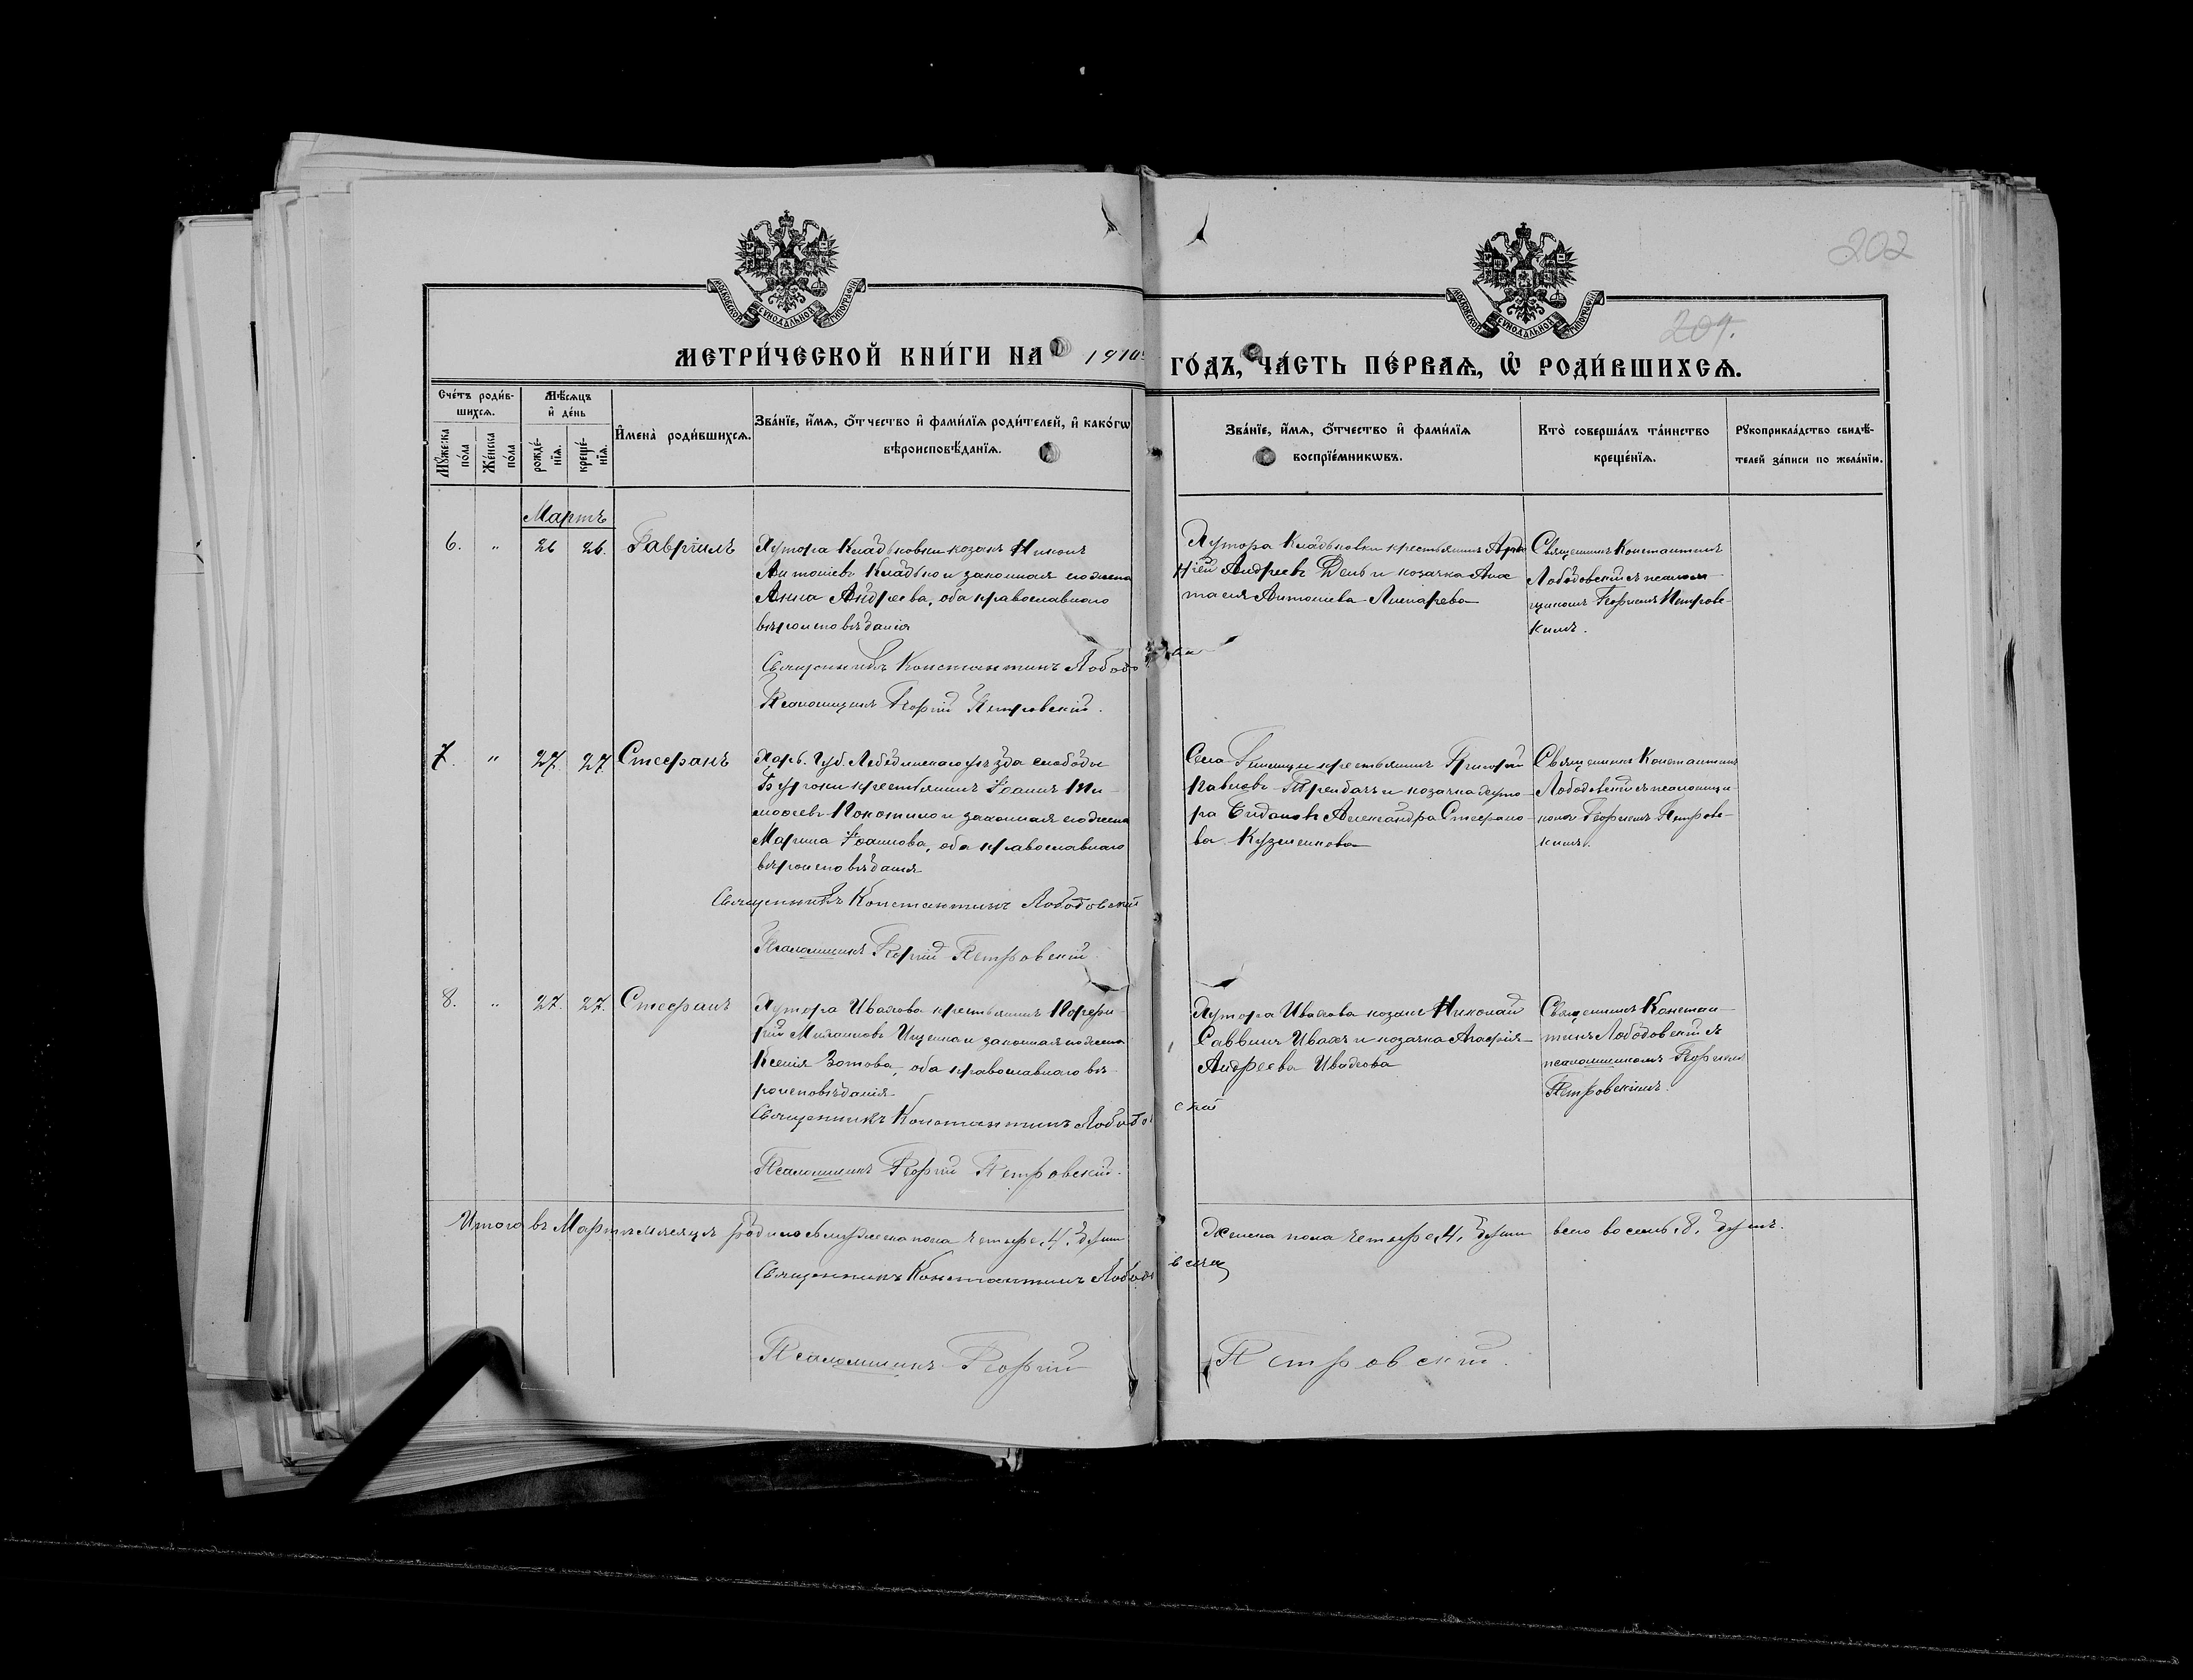 202
204.
МОСКОВСКОЙ СѴНОДАЛЬНОЙ ТИПОГРАФІИ
МОСКОВСКОЙ СѴНОДАЛЬНОЙ ТИПОГРАФІИ
МЕТРИ́ЧЕСКОЙ КНИ́ГИ НА 1910 ГО́ДЪ, ЧА́СТЬ ПЕ́РВАѦ, Ѡ҆ РОДИ́ВШИХСѦ.
Сче́тъ роди́в-
шихсѧ.
Мꙋ́жеска по́ла
Же́нска по́ла
Мѣ́сѧцъ и҆ де́нь
рожде́-нїѧ.
креще́-нїѧ.
И҆мена̀ роди́вшихсѧ.
Зва́нїе, и҆́мѧ, ѻ҆́тчество и҆ фами́лїѧ роди́телей, и҆ како́гѡ
вѣроисповѣ́данїѧ.
Зва́нїе, и҆́мѧ, ѻ҆́тчество и҆ фами́лїѧ
воспрїе́мникѡвъ.
Кто̀ соверша́лъ та́инство
креще́нїѧ.
Рꙋкоприкла́дство свидѣ́-
телей за́писи по жела́нїю.
Мартъ
6. " 26 26. Гавріилъ
Хутора Кладьковки козакъ Никонъ
Антоніевъ Кладько и законная его жена
Анна Андреева, оба православнаго
вѣроисповѣданія
Священникъ Константинъ Лободо
вскій
Псаломщикъ Георгій Петровскій.
Хутора Кладьковки крестьянинъ
Андреевъ День и козачка Анас
тасія Антоніева
Священникъ Константинъ
Лободовскій съ псалом-
щикомъ Георгіемъ Петровс-
кимъ.
7. " 27. 27 Стефанъ
Харь. Губ. Лебединскаго уѣзда слободы
крестьянинъ Іоаннъ Ти-
моѳеевъ и законная его жена
Марина Іоаннова, оба православнаго
вѣроисповѣданія
Священникъ Константинъ Лободовскій
Псаломщикъ Георгій Петровскій
Села крестьянинъ Григорій
Павловъ и козачка хуто-
ра Александра Стефано-
ва Кузменкова
Священникъ Константинъ
Лободовскій съ псаломщи-
комъ Георгіемъ Петровс-
кимъ.
8. " 27. 27. Стефанъ
Хутора Ивахова крестьянинъ Порфи-
рій Ищенко и законная его жена
Ксенія Зотова, оба православнаго вѣ-
роисповѣданія
Священникъ Константинъ Лободов
скій
Псаломщикъ Георгій Петровскій.
Хутора Ивахова козакъ Николай
Саввинъ Ивахъ и козачка Агафія
Андреева Ивахова
Священникъ Констан-
тинъ Лободовскій съ
псаломщикомъ Георгіемъ
Петровскимъ.
Итого въ Мартѣ мѣсяцѣ родилось мужеска пола четыре, 4, души
женска пола четыре, 4, души всего восемь, 8, душъ.
Священникъ Константинъ Лободо
вскій
Псаломщикъ Георгій Петровскій.